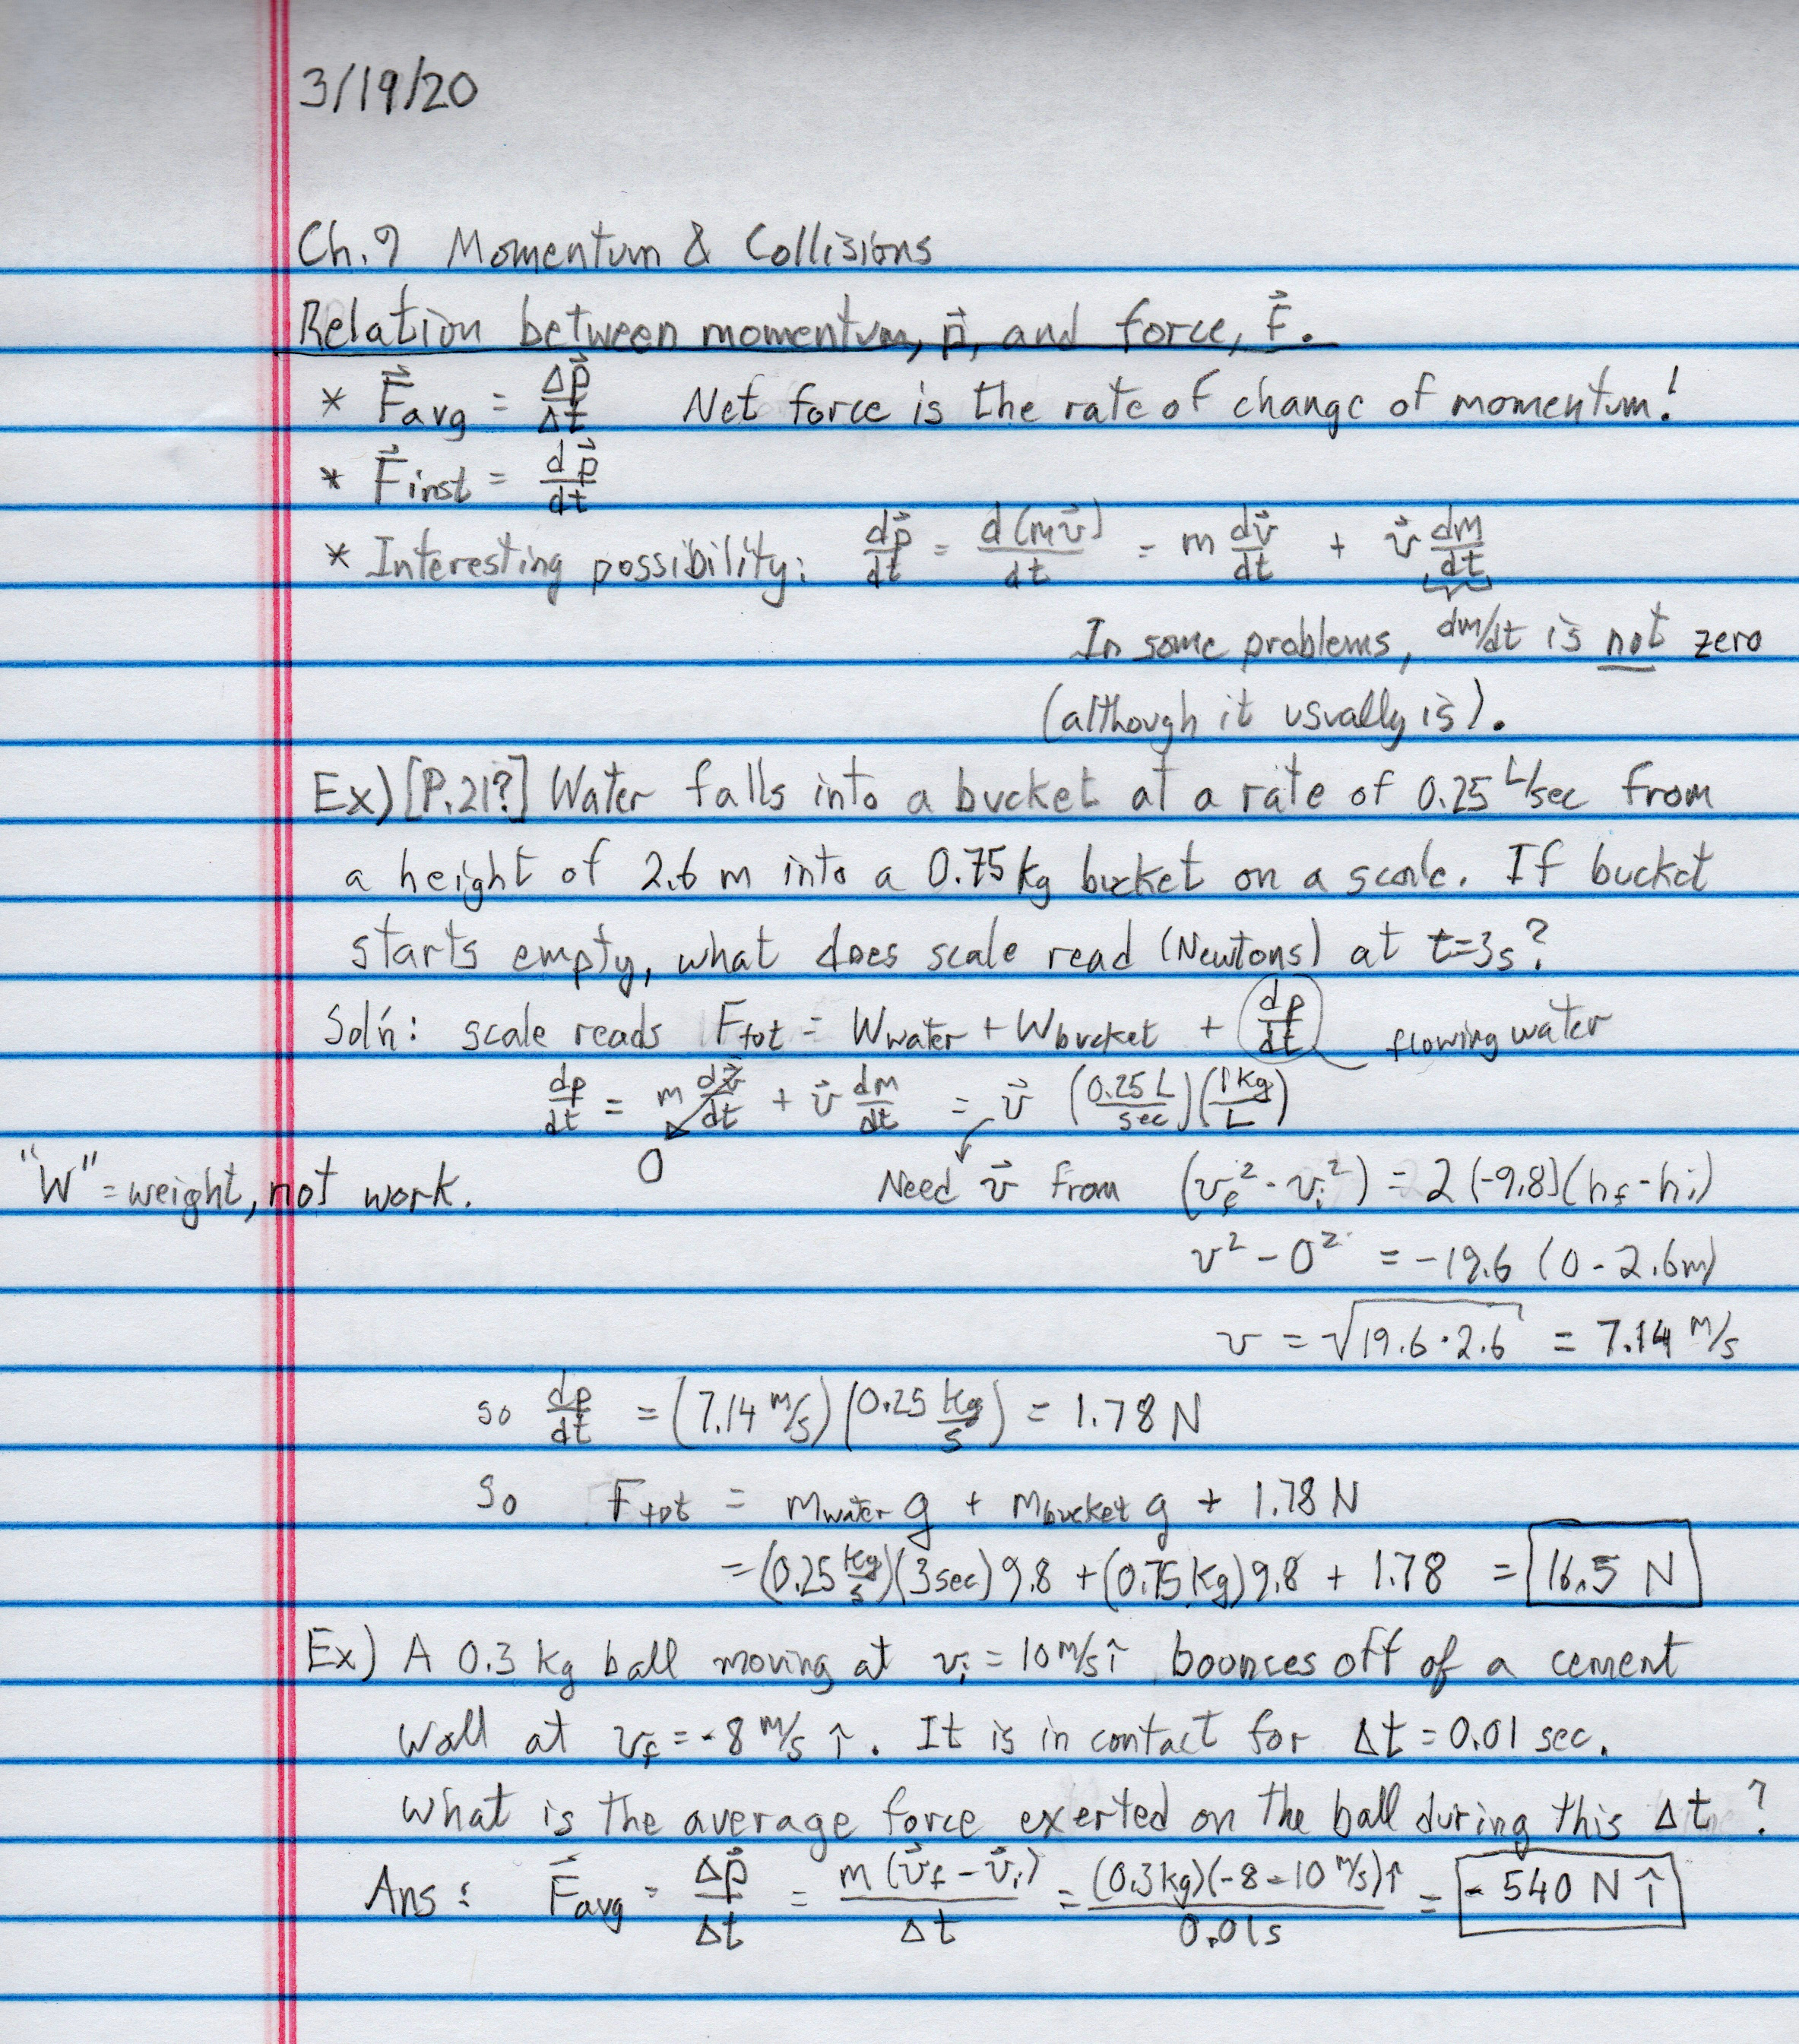 3/19/20
Ch.9 Momentum & Collisions
Relation between momentum, p⃗, and force, F⃗.
* F⃗avg = Δp⃗/Δt Net force is the rate of change of momentum!
* F⃗inst = dp⃗/dt
* Interesting possibility: dp⃗/dt = d(mv⃗)/dt = m dv⃗/dt + v⃗ dm/dt
In some problems, dm/dt is not zero
(although it usually is).
Ex) [P.21?] Water falls into a bucket at a rate of 0.25 L/sec from
a height of 2.6 m into a 0.75 kg bucket on a scale. If bucket
starts empty, what does scale read (Newtons) at t=3s?
Sol'n: scale reads Ftot = Wwater + Wbucket + dp/dt flowing water
dp/dt = m dv⃗/dt + v⃗ dm/dt = v⃗ (0.25 L/sec)(1 kg/L)
0
"W" = weight, not work.
Need v⃗ from (vf² - vi²) = 2(-9.8)(hf - hi)
v² - 0² = -19.6 (0 - 2.6m)
v = √19.6·2.6 = 7.14 m/s
so dp/dt = (7.14 m/s)(0.25 kg/s) = 1.78 N
so Ftot = mwater g + mbucket g + 1.78 N
= (0.25 kg/s)(3 sec) 9.8 + (0.75 kg) 9.8 + 1.78 = 16.5 N
Ex) A 0.3 kg ball moving at vi = 10 m/s î bounces off of a cement
wall at vf = -8 m/s î. It is in contact for Δt = 0.01 sec.
What is the average force exerted on the ball during this Δt?
Ans: F⃗avg = Δp⃗/Δt = m(v⃗f - v⃗i)/Δt = (0.3 kg)(-8 - 10 m/s) î/0.01s = -540 N î